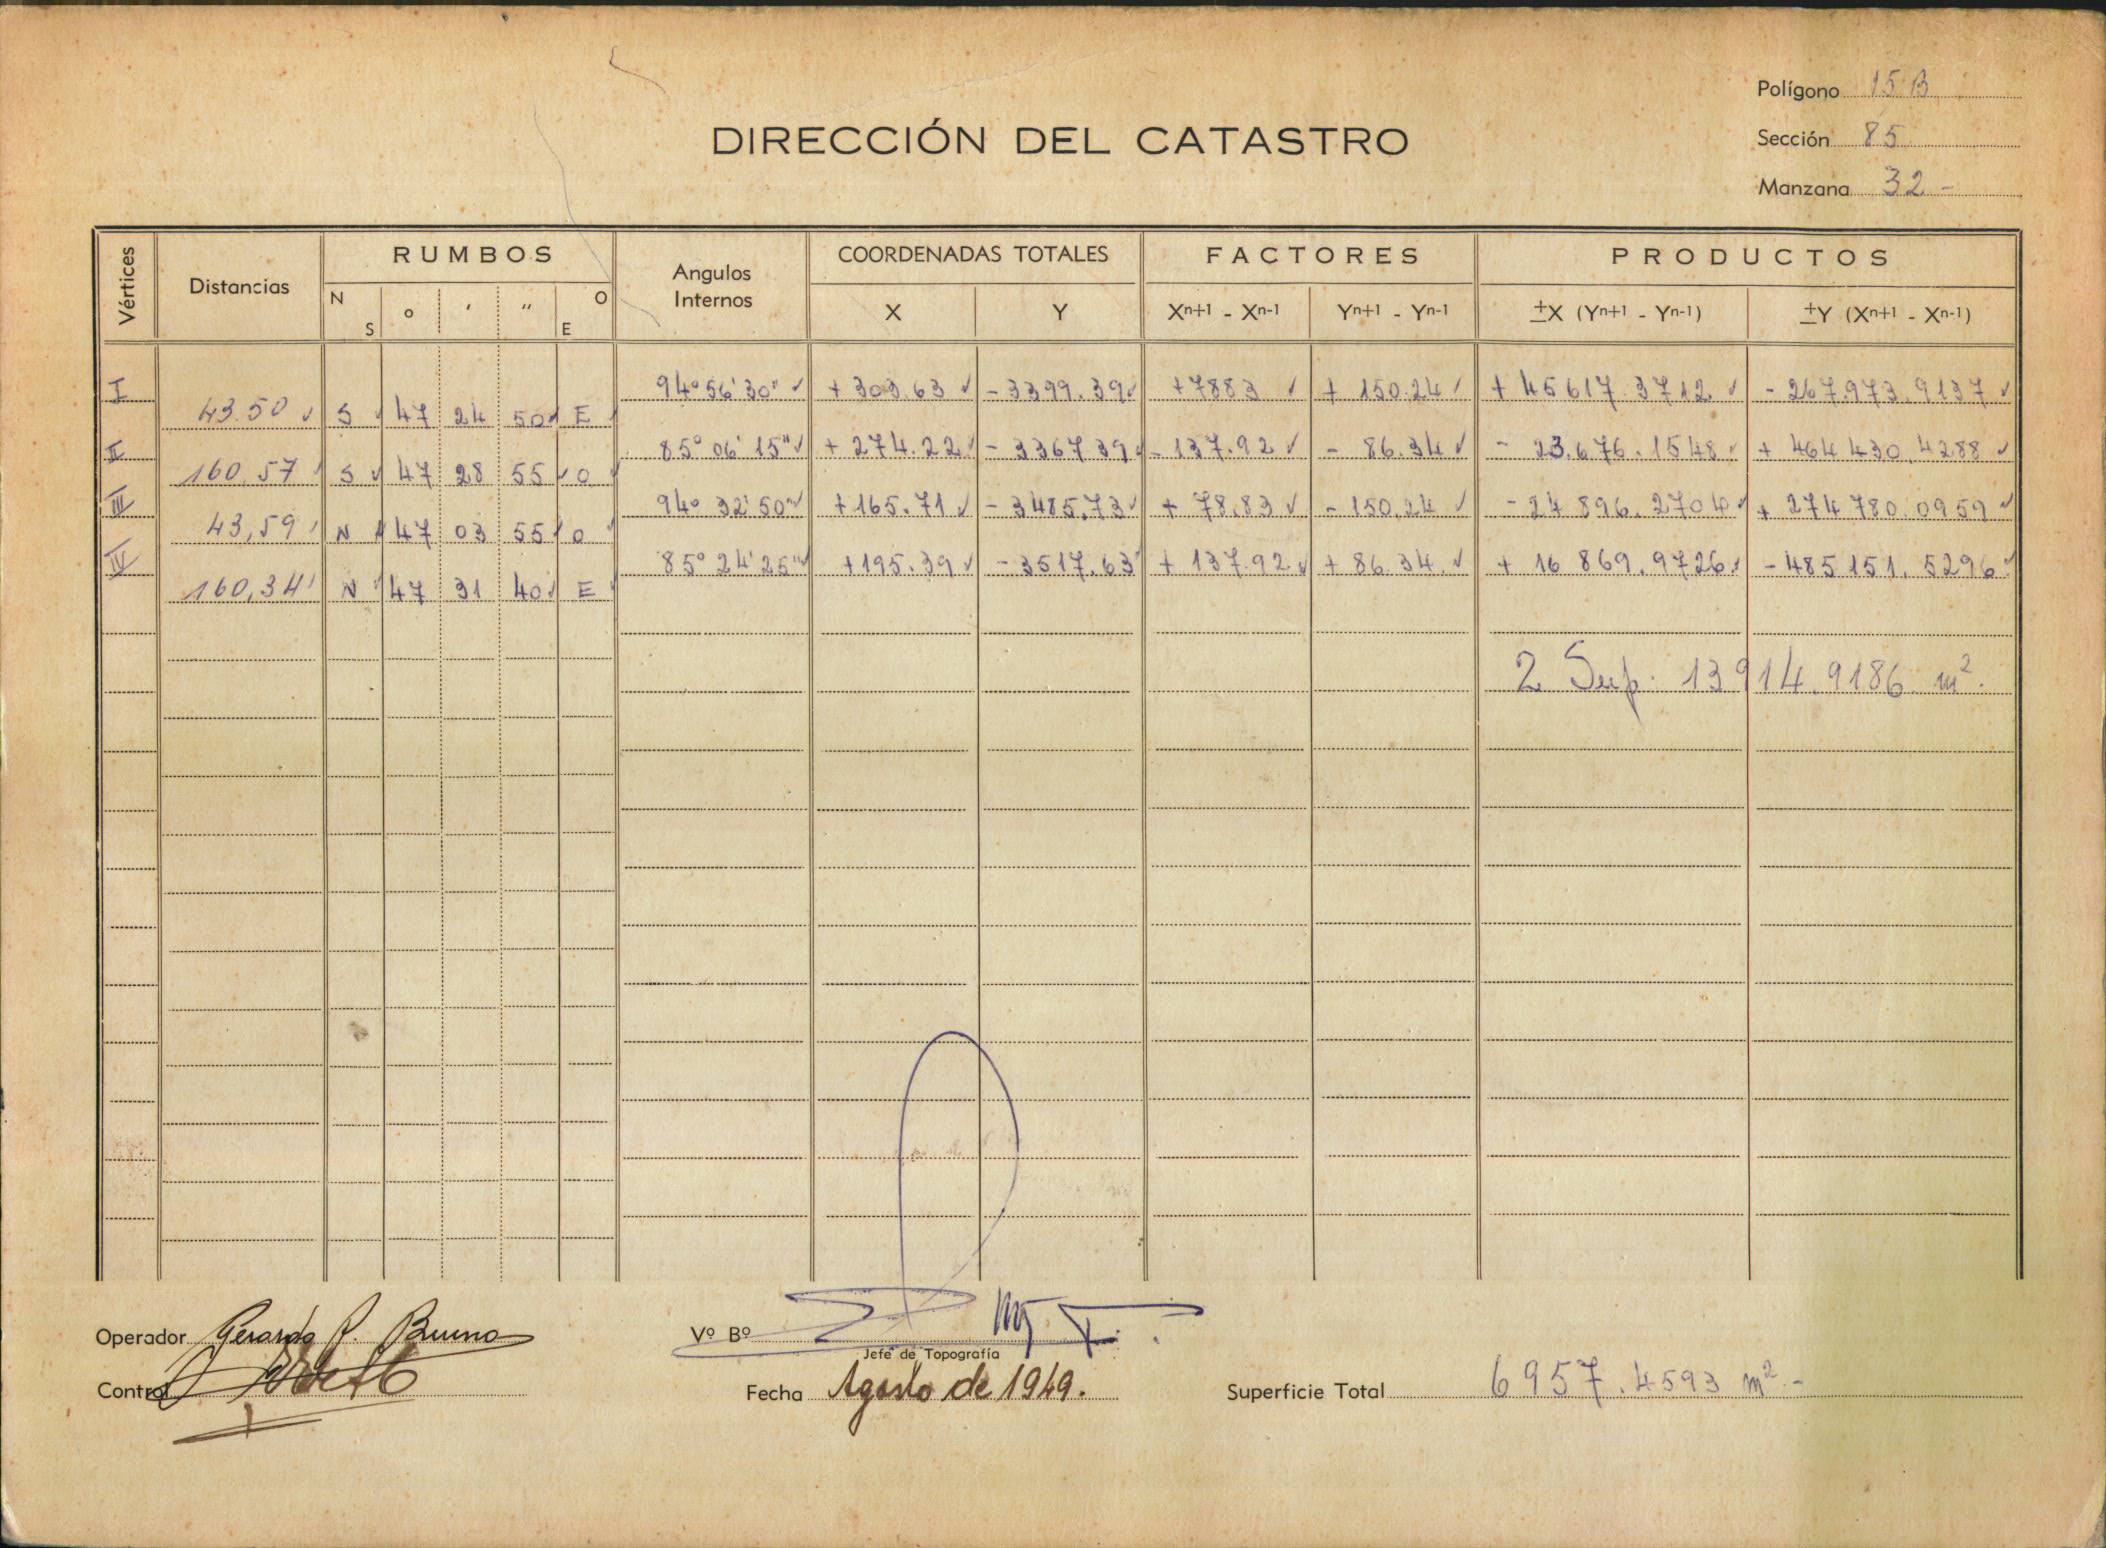 Polígono 15 B
DIRECCIÓN DEL CATASTRO
Sección 85
Manzana 32 -
Vértices Distancias RUMBOS N S º ' " E O Angulos Internos COORDENADAS TOTALES X Y FACTORES Xn+1 - Xn-1 Yn+1 - Yn-1 PRODUCTOS ±X (Yn+1 - Yn-1) ±Y (Xn+1 - Xn-1)
I 94° 56' 30" ✓ + 303.63 ✓ - 3399.39 ✓ + 7883 ✓ + 150.24 ✓ + 45617.3712 ✓ - 267.973.9137 ✓
43.50 ✓ S ✓ 47 24 50 ✓ E ✓
II 85° 06' 15" ✓ + 274.22 ✓ - 3367 39 ✓ - 137.92 ✓ - 86.34 ✓ - 23.676.1548 ✓ + 464 430.4288 ✓
160.57 ✓ S ✓ 47 28 55 ✓ O
III 94° 32' 50" ✓ + 165.71 ✓ - 3485.73 ✓ + 78.83 ✓ - 150.24 ✓ - 24 896.2704 ✓ + 274 780.0959 ✓
43,59 ✓ N ✓ 47 03 55 ✓ O
IV 85° 24' 25" ✓ + 195.39 ✓ - 3517.63 ✓ + 137.92 ✓ + 86.34 ✓ + 16 869.9726 ✓ - 485 151.5296 ✓
160,34 ✓ N ✓ 47 31 40 ✓ E ✓
2 Sup. 13914.9186 m².
Operador Gerardo R. Bruno
Vº Bº
Jefe de Topografía
Control
Fecha Agosto de 1949.
Superficie Total 6957.4593 m² -